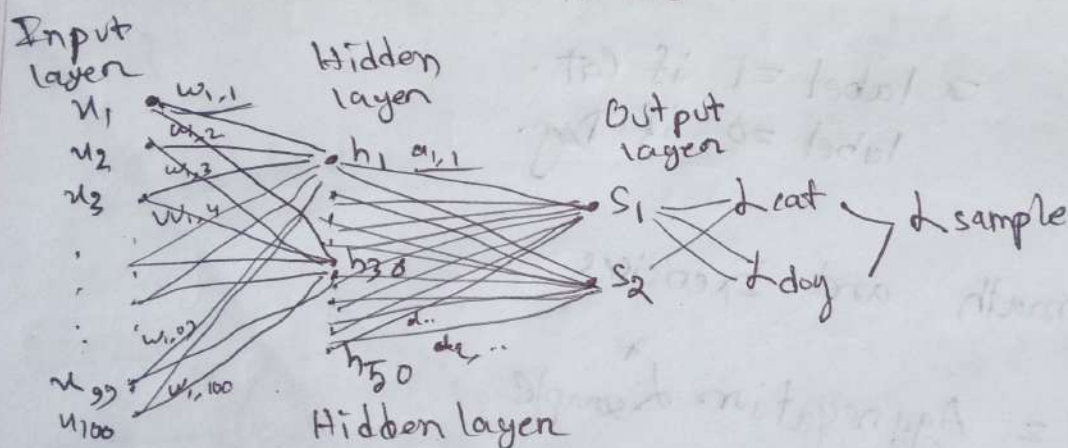 Input
layer
x1
x2
x3
x99
x100
w1,1
w1,2
w1,3
w1,4
w1,100
Hidden
layer
h1
h30
h50
Hidden layer
a1,1
Output
layer
S1
S2
Lcat
Ldog
Lsample